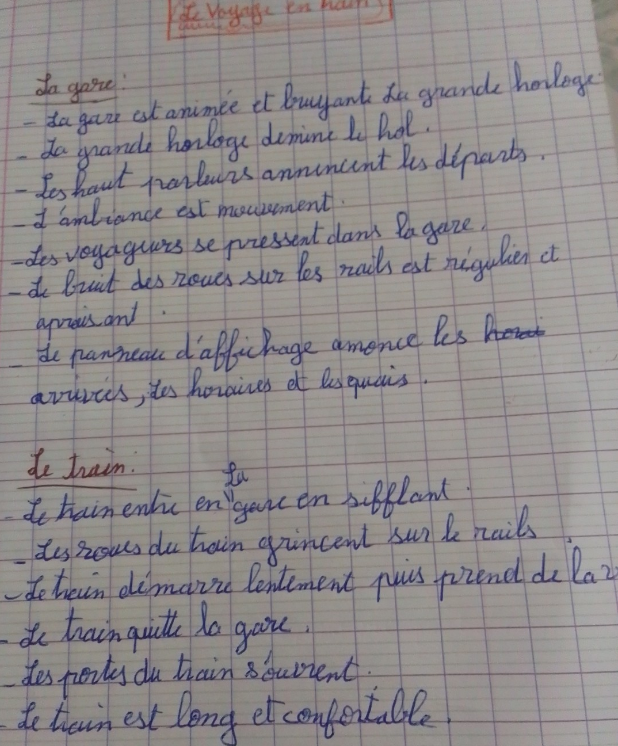 Le Voyage en train
La gare :
- La gare est animée et bruyante La grande horloge
- La grande horloge demine le hol.
- Les haut parleurs annincent les départs.
- L'ambiance est mouvement.
- Les voyageurs se pressent dans la gare.
- Le bruit des roues sur les rails est régulier et
apaisant.
- Le panneau d'affichage amonce les
arrivées, les horaires et les quais.
Le train.
La
- Le train entre en "gare en sifflant.
- Les roues du train grincent sur le rails.
- Le train démarre lentement puis prend de la
- Le train quitte la gare.
- Les portes du train s'ouvrent.
- Le train est long et confortable.